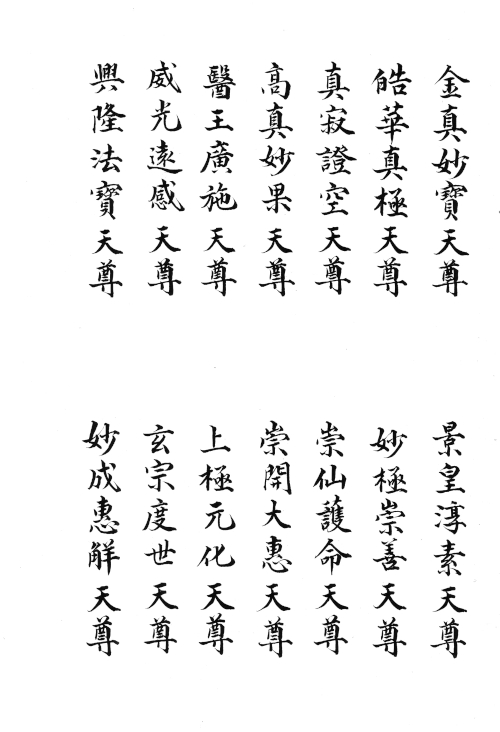 金真妙寶天尊
皓華真極天尊
真寂證空天尊
高真妙果天尊
醫王廣施天尊
威光遠感天尊
興隆法寶天尊
景皇淳素天尊
妙極崇善天尊
崇仙護命天尊
崇開大惠天尊
上極元化天尊
玄宗度世天尊
妙成惠解天尊